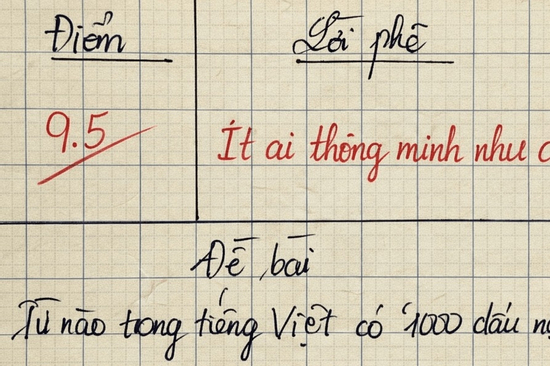 Điểm
Lời phê
9.5
Ít ai thông minh như
Đề bài
Từ nào trong tiếng Việt có "1000 dấu